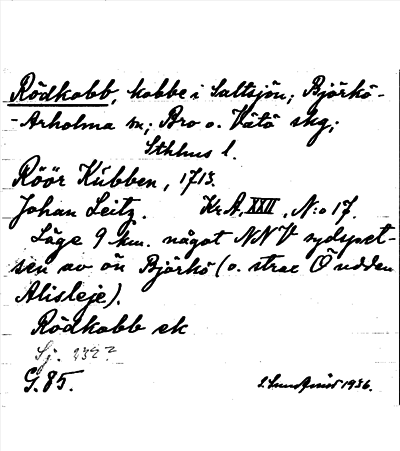 Rödkobb, kobbe i Saltsjön; Björkö-
-Arholma sn; Bro o. Vätö skg;
Sthlms l.
Röör Kubben, 1713.
Johan Leitz. Kr A, XXII, N:o 17.
Läge 9 km. något NNV sydspet-
sen av ön Björkö (o. strax Ö udden
Alisleje).
Rödkobb ek
Sj. 232?
G. 85.
1936.